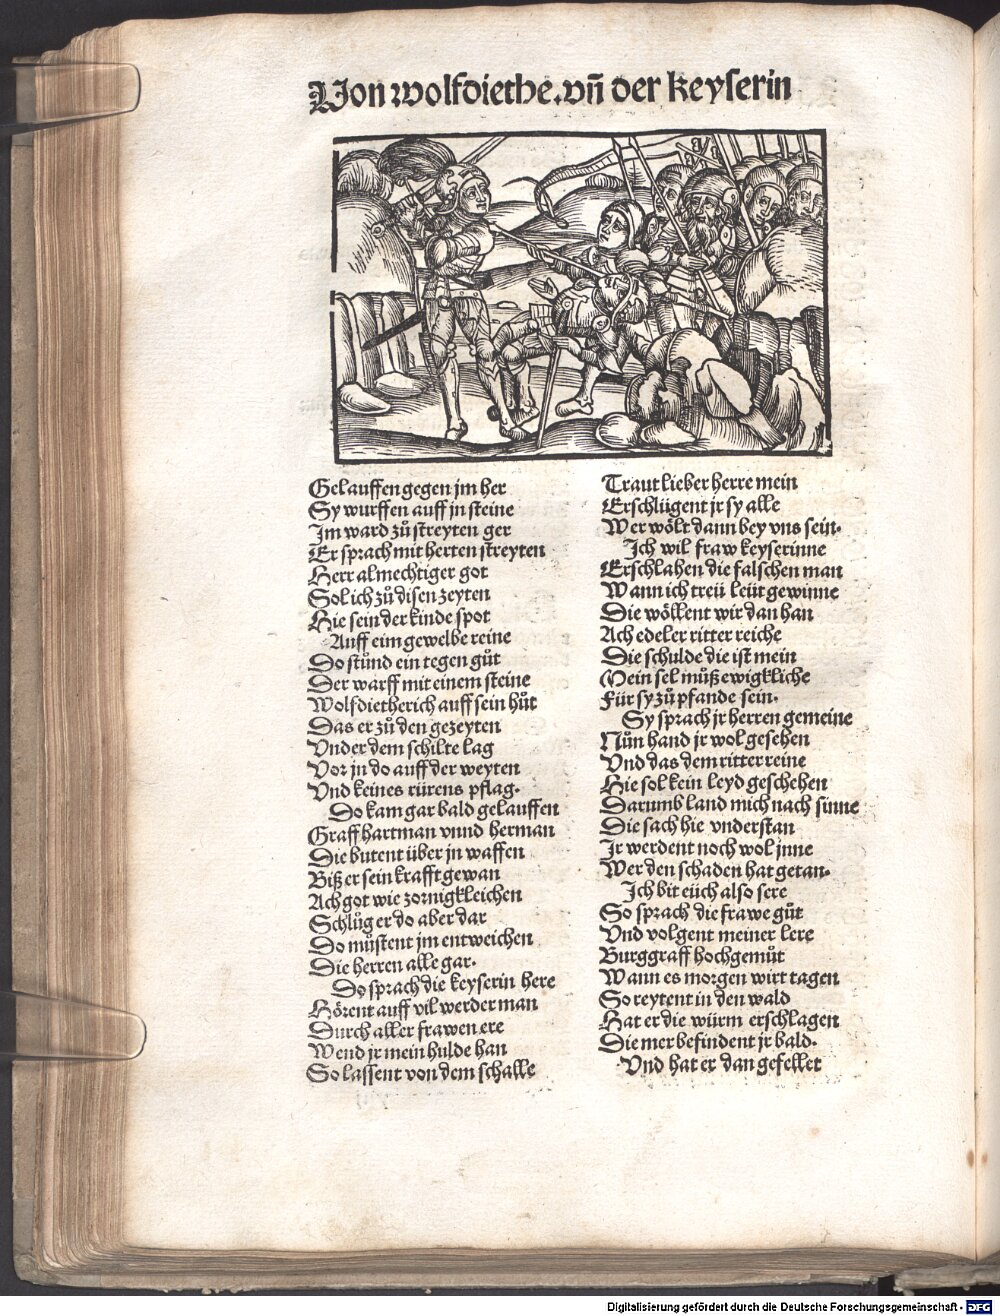 Von wolfdiethe. vñ der keyserin
Gelauffen gegen jm her
Sy wurffen auff jn steine
Im ward zů streyten ger
Er sprach mit herten streyten
Herr almechtiger got
Sol ich zů disen zeyten
Hie sein der kinde spot
Auff eim gewelbe reine
Do stůnd ein tegen gůt
Der warff mit einem steine
Wolfdietherich auff sein hůt
Das er zů den gezeyten
Vnder dem schilte lag
Vor jn do auff der weyten
Vnd keines rürens pflag.
Do kam gar bald gelauffen
Graff hartman vnnd herman
Die butent über jn waffen
Biß er sein krafft gewan
Ach got wie zornigkleichen
Schlůg er do aber dar
Do můstent jm entweichen
Die herren alle gar.
Do sprach die keyserin here
Hörent auff vil werder man
Durch aller frawen ere
Wend jr mein hulde han
So lassent von dem schalle
Traut lieber herre mein
Erschlügent jr sy alle
Wer wölt dann bey vns sein.
Ich wil fraw keyserinne
Erschlahen die falschen man
Wann ich treü leüt gewinne
Die wöllent wir dan han
Ach edeler ritter reiche
Die schulde die ist mein
Mein sel můß ewigkliche
Für sy zů pfande sein.
Sy sprach jr herren gemeine
Nůn hand jr wol gesehen
Vnd das dem ritter reine
Hie sol kein leyd geschehen
Darumb land mich nach sinne
Die sach hie vnderstan
Ir werdent noch wol jnne
Wer den schaden hat getan.
Ich bit eüch also sere
So sprach die frawe gůt
Vnd volgent meiner lere
Burggraff hochgemůt
Wann es morgen wirt tagen
So reytent in den wald
Hat er die würm erschlagen
Die mer befindent jr bald.
Vnd hat er dan gefellet
Digitalisierung gefördert durch die Deutsche Forschungsgemeinschaft - DFG